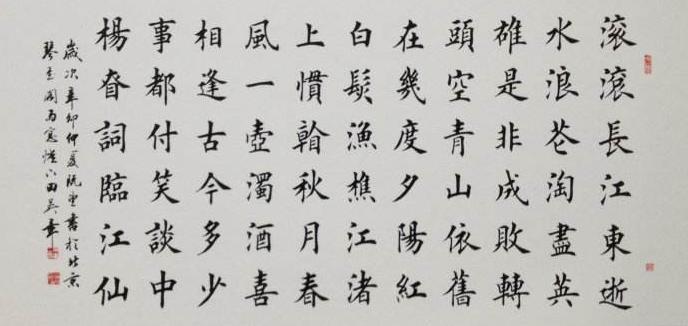 滚滚長江東逝
水浪花淘盡英
雄是非成敗轉
頭空青山依舊
在幾度夕陽紅
白髮漁樵江渚
上慣看秋月春
風一壺濁酒喜
相逢古今多少
事都付笑談中
楊眘詞臨江仙
歲次辛卯仲夏書於北京
琴閣南窓燈下田英章